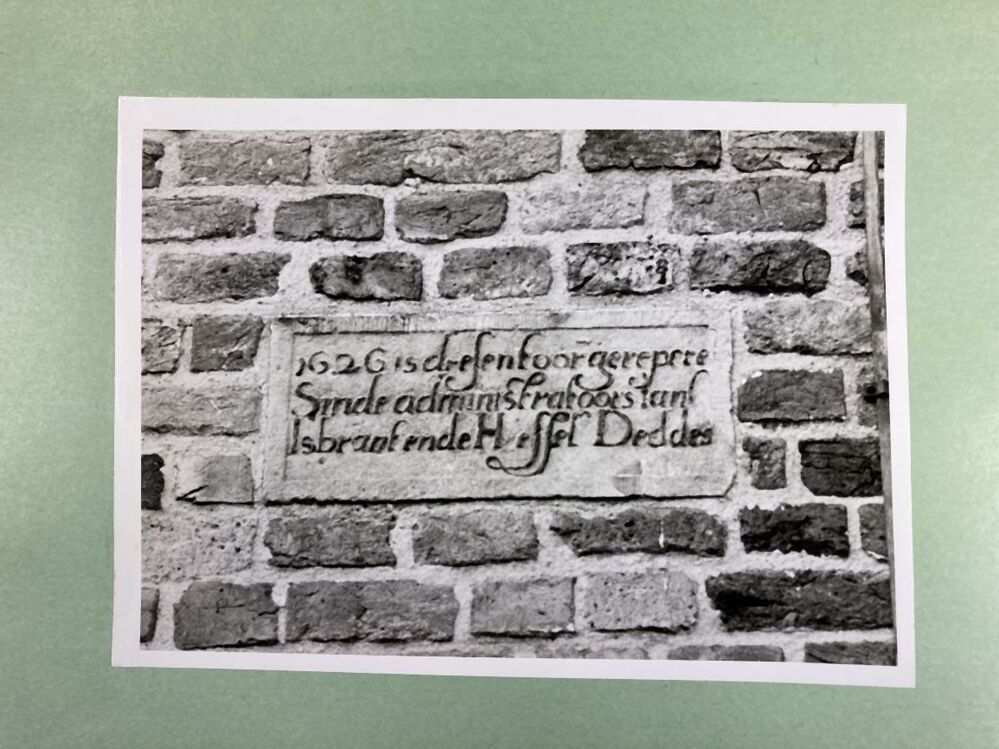 1626 is desen toor gerepere
Sinde administratoors iant
Isbrant ende Hessel Deddes